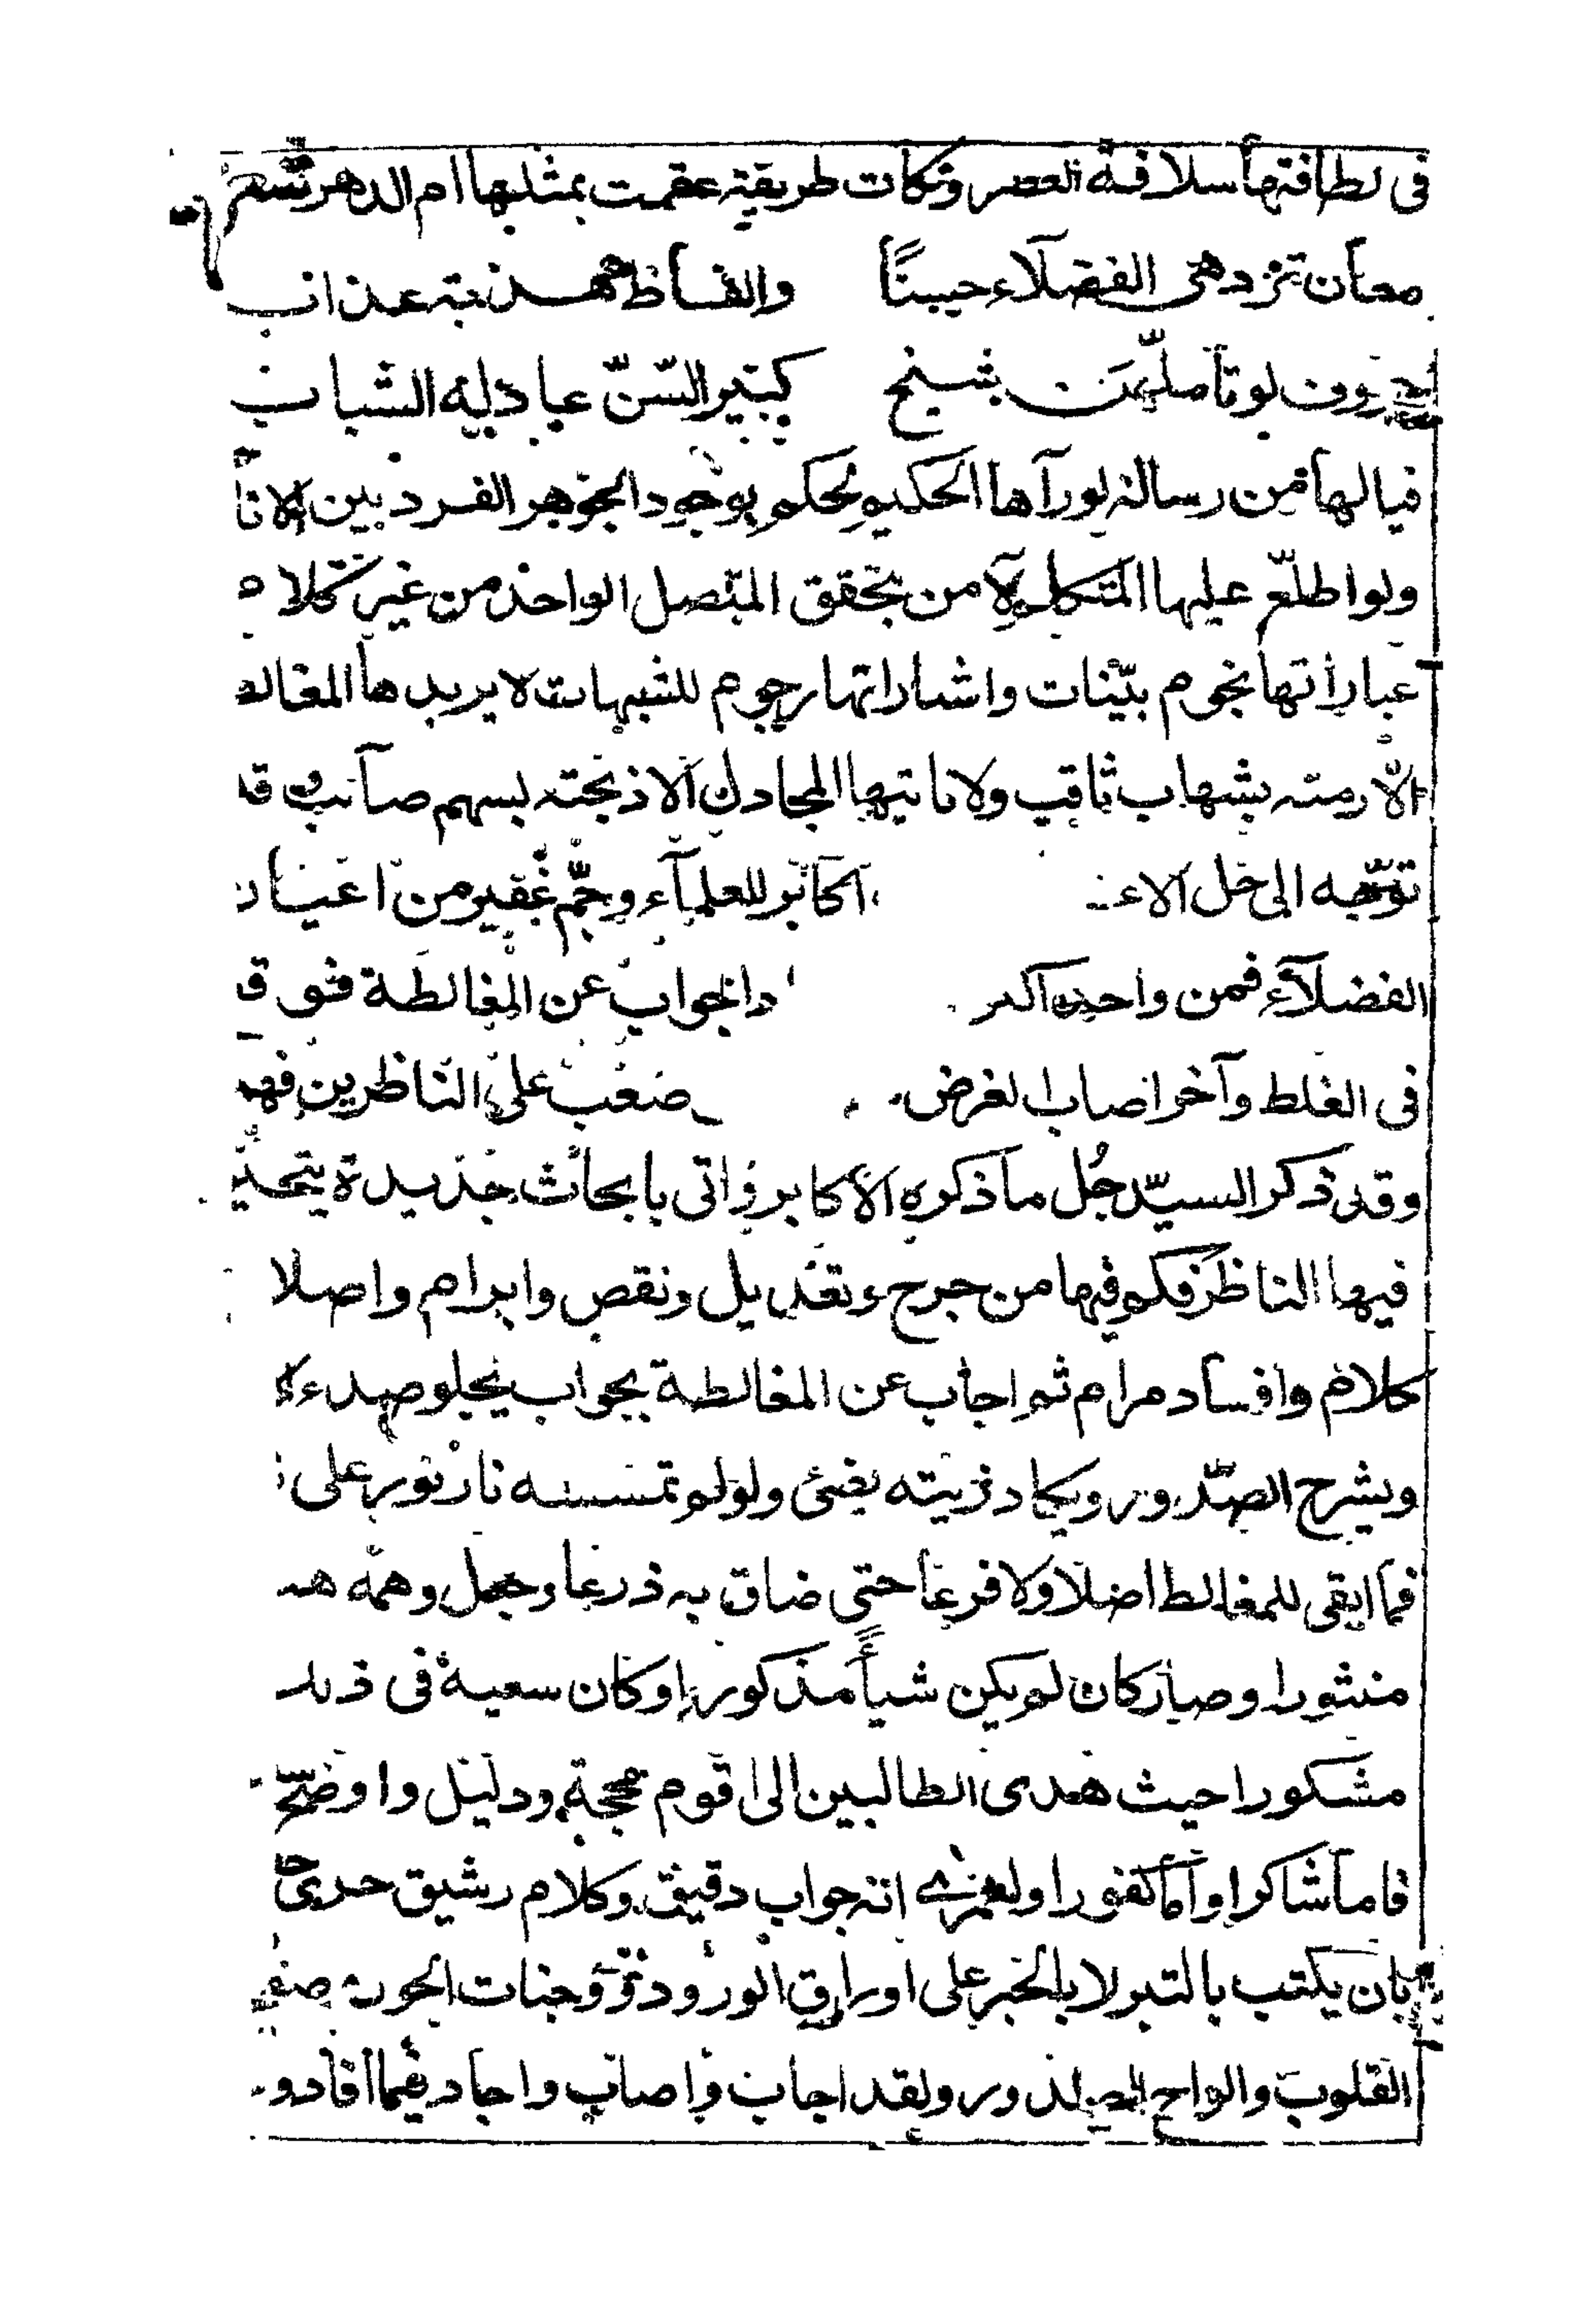 فى لطافتها سلافة العصر ونكات طريقة عقمت بمثلها ام الدهر شعر
معان تزدهى الفضلاء حسنًا والفاظ مهذبة عذاب
حروف لو تأملهن شيخ كبير السّنّ عاد له الشباب
فيالها من رسالة لورآها الحكيم لحكم بوجود الجوهر الفرد بين الانا
ولواطلع عليها المتكلم لآمن بتحقق المتصل الواحد من غير كلا
عباراتها نجوم بيّنات واشاراتها رجوم للشبهات لا يريدها المغالط
الّا رمته بشهاب ثاقب ولا ياتيها المجادل الا ذبحته بسهم صآئب وقد
توجّه الى حل الاء اكابر العلمآء وجمّ غفير من اعيان
الفضلآء فمن واحد اكبر الجواب عن المغالطة فوق
فى الغلط وآخر اصاب الغرض صعب على الناظرين فهم
وقد ذكر السيّد جُل ما ذكره الاكابر واتى بابحاث جديدة يتحير
فيها الناظر فكم فيها من جرح وتعديل ونقض وابرام واصلا
كلام وافساد مرام ثم اجاب عن المغالطة بجواب يجلو صدء
ويشرح الصّدور ويكاد زيته يضئ ولو لم تمسسه نار نور على
فما ابقى للمغالط اصلا ولا فرعا حتى ضاق به ذرعا وجعل وهمه هبـ
منثورا وصار كان لم يكن شيأً مذكورا وكان سعيه فى ذلك
مشكورا حيث هدى الطالبين الى اقوم محجة ودليل واوضح
فاما شاكرا واما كفورا ولعمرى انه جواب دقيق وكلام رشيق حرىّ
بان يكتب بالتبر لا بالحبر على اوراق الورود ووجنات الحور
القلوب والواح الصدور ولقد اجاب واصاب واجاد فيما افاد و